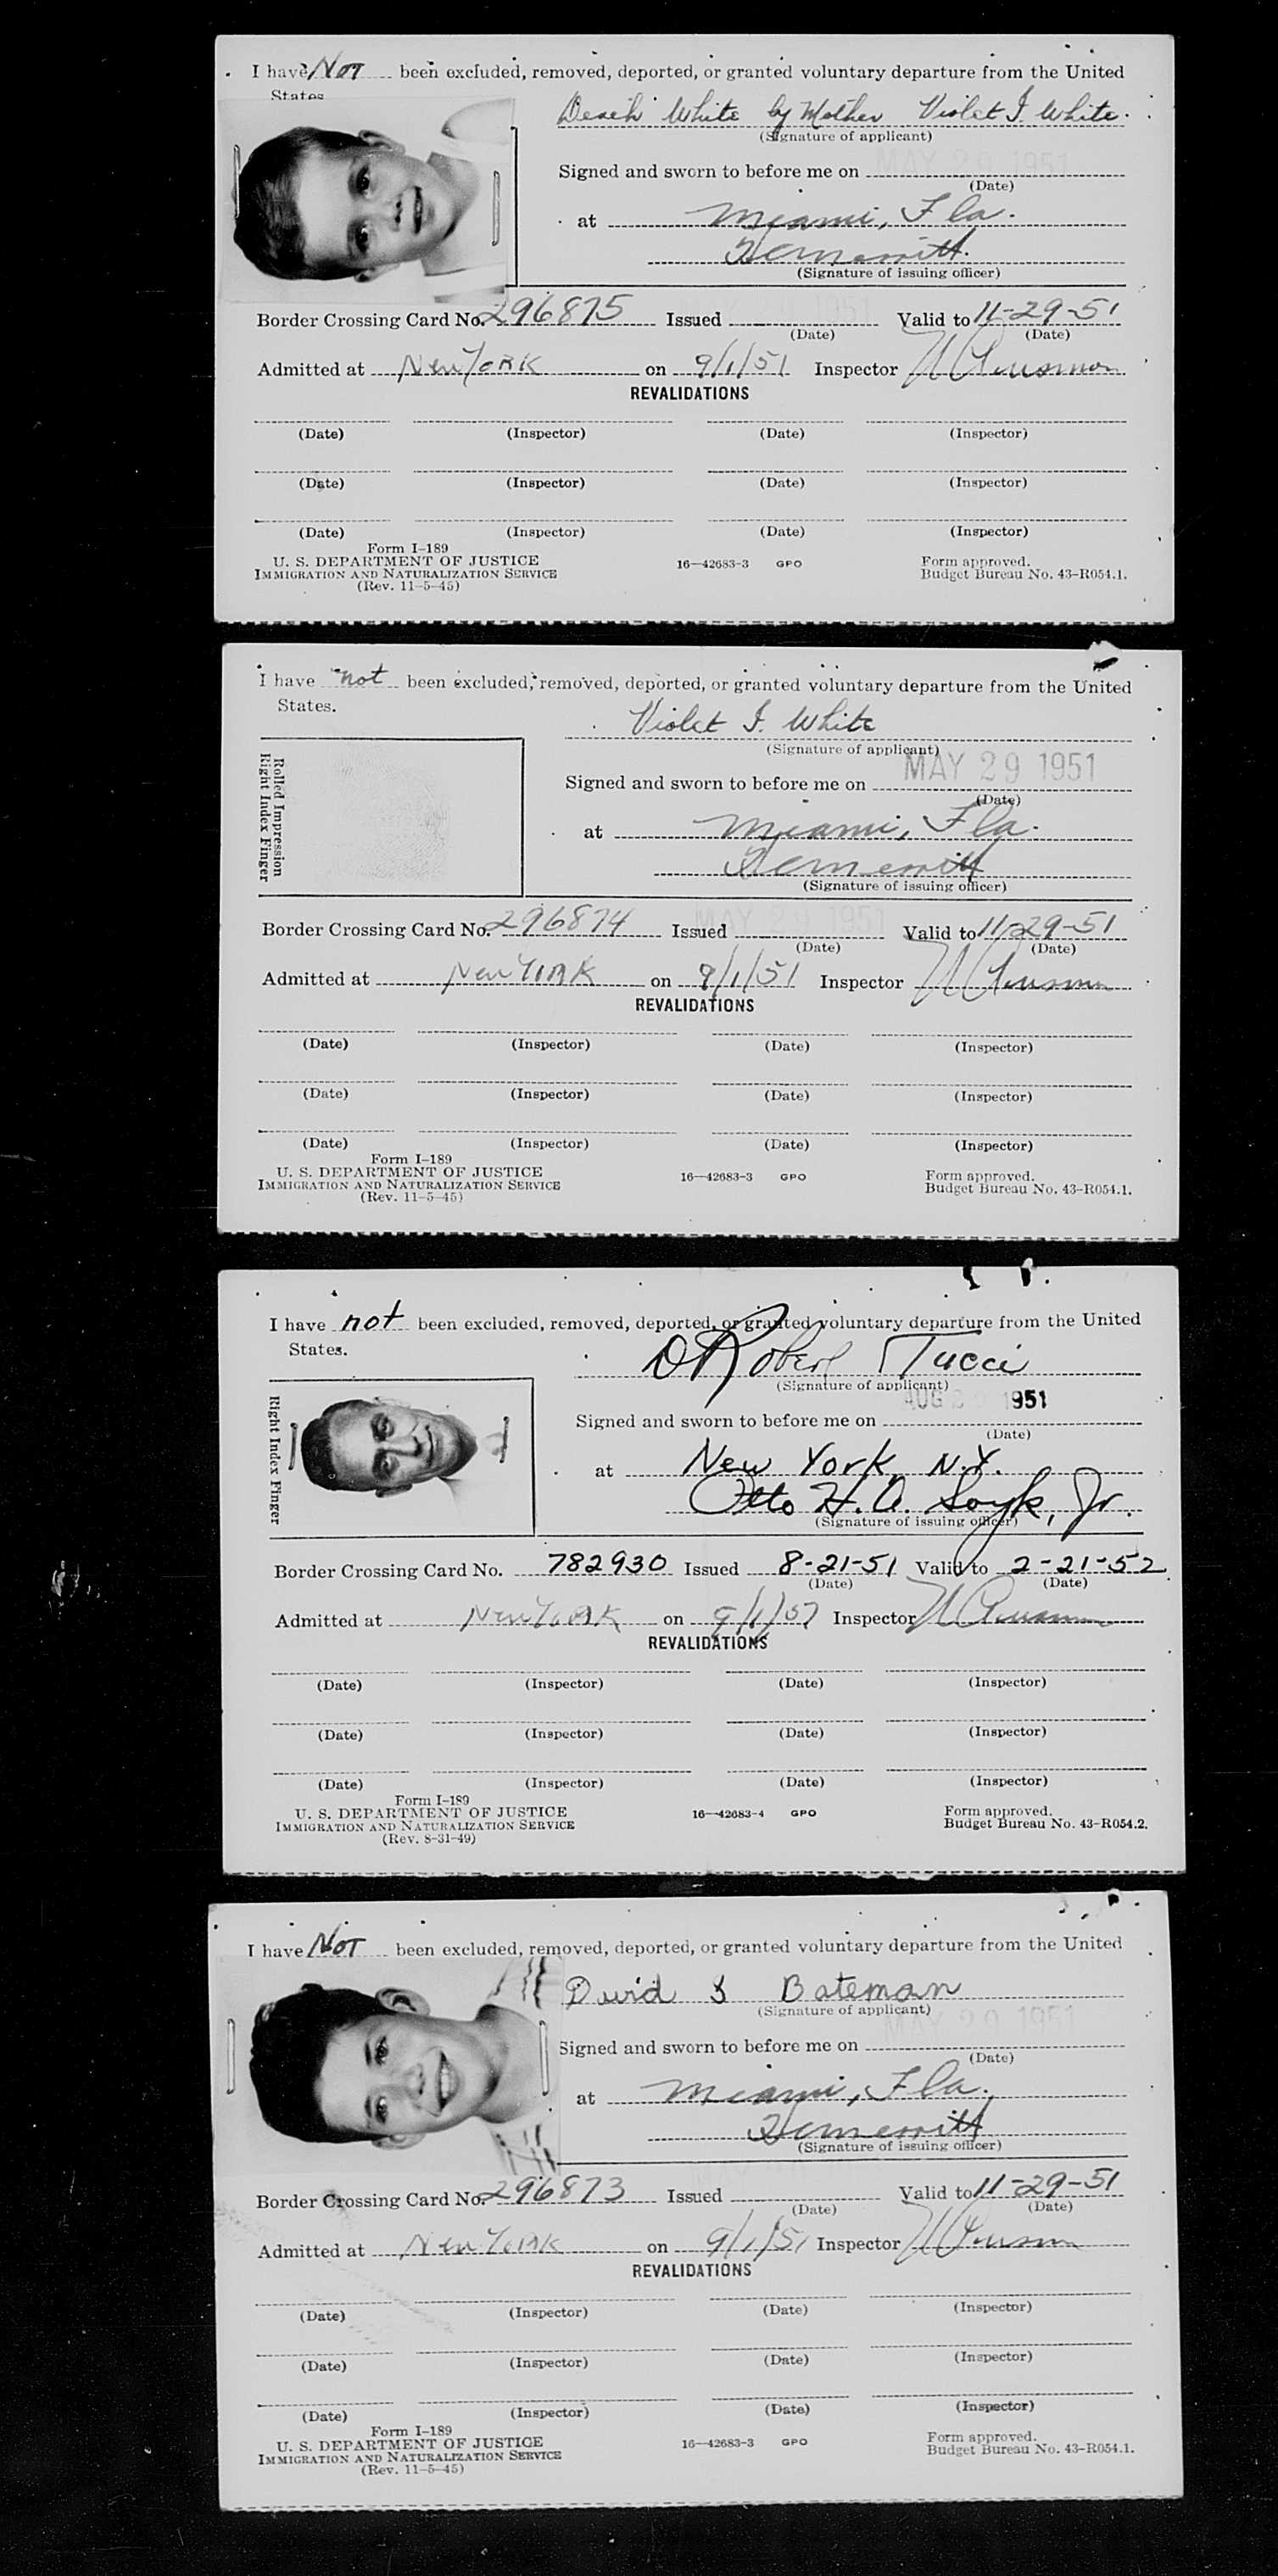 I have Not been excluded, removed, deported, or granted voluntary departure from the United
States
White by Mother Violet I. White.
(Signature of applicant)
Signed and sworn to before me on MAY 29 1951
(Date)
at Miami, Fla.
(Signature of issuing officer)
Border Crossing Card No. 296875 Issued MAY 29 1951 Valid to 11-29-51
(Date) (Date)
Admitted at New York on 9/1/51 Inspector
REVALIDATIONS
(Date) (Inspector) (Date) (Inspector)
(Date) (Inspector) (Date) (Inspector)
(Date) (Inspector) (Date) (Inspector)
Form I-189
U. S. DEPARTMENT OF JUSTICE 16—42683-3 GPO Form approved.
IMMIGRATION AND NATURALIZATION SERVICE Budget Bureau No. 43-R054.1.
(Rev. 11-5-45)
I have not been excluded, removed, deported, or granted voluntary departure from the United
States.
Violet I. White
(Signature of applicant)
Rolled Impression
Right Index Finger
Signed and sworn to before me on MAY 29 1951
(Date)
at Miami, Fla.
(Signature of issuing officer)
Border Crossing Card No. 296874 Issued MAY 29 1951 Valid to 11-29-51
(Date) (Date)
Admitted at New York on 9/1/51 Inspector
REVALIDATIONS
(Date) (Inspector) (Date) (Inspector)
(Date) (Inspector) (Date) (Inspector)
(Date) (Inspector) (Date) (Inspector)
Form I-189
U. S. DEPARTMENT OF JUSTICE 16—42683-3 GPO Form approved.
IMMIGRATION AND NATURALIZATION SERVICE Budget Bureau No. 43-R054.1.
(Rev. 11-5-45)
I have not been excluded, removed, deported, or granted voluntary departure from the United
States.
D Robert Tucci
(Signature of applicant)
Right Index Finger
Signed and sworn to before me on AUG 1951
(Date)
at New York, N.Y.
Otto H. A. Jr.
(Signature of issuing officer)
Border Crossing Card No. 782930 Issued 8-21-51 Valid to 2-21-52
(Date) (Date)
Admitted at New York on Inspector
REVALIDATIONS
(Date) (Inspector) (Date) (Inspector)
(Date) (Inspector) (Date) (Inspector)
(Date) (Inspector) (Date) (Inspector)
Form I-189
U. S. DEPARTMENT OF JUSTICE 16—42683-4 GPO Form approved.
IMMIGRATION AND NATURALIZATION SERVICE Budget Bureau No. 43-R054.2.
(Rev. 8-31-49)
I have Not been excluded, removed, deported, or granted voluntary departure from the United
David S Bateman
(Signature of applicant)
Signed and sworn to before me on MAY 29 1951
(Date)
at Miami, Fla.
(Signature of issuing officer)
Border Crossing Card No. 296873 Issued Valid to 11-29-51
(Date) (Date)
Admitted at New York on 9/1/51 Inspector
REVALIDATIONS
(Date) (Inspector) (Date) (Inspector)
(Date) (Inspector) (Date) (Inspector)
(Date) (Inspector) (Date) (Inspector)
Form I-189
U. S. DEPARTMENT OF JUSTICE 16—42683-3 GPO Form approved.
IMMIGRATION AND NATURALIZATION SERVICE Budget Bureau No. 43-R054.1.
(Rev. 11-5-45)